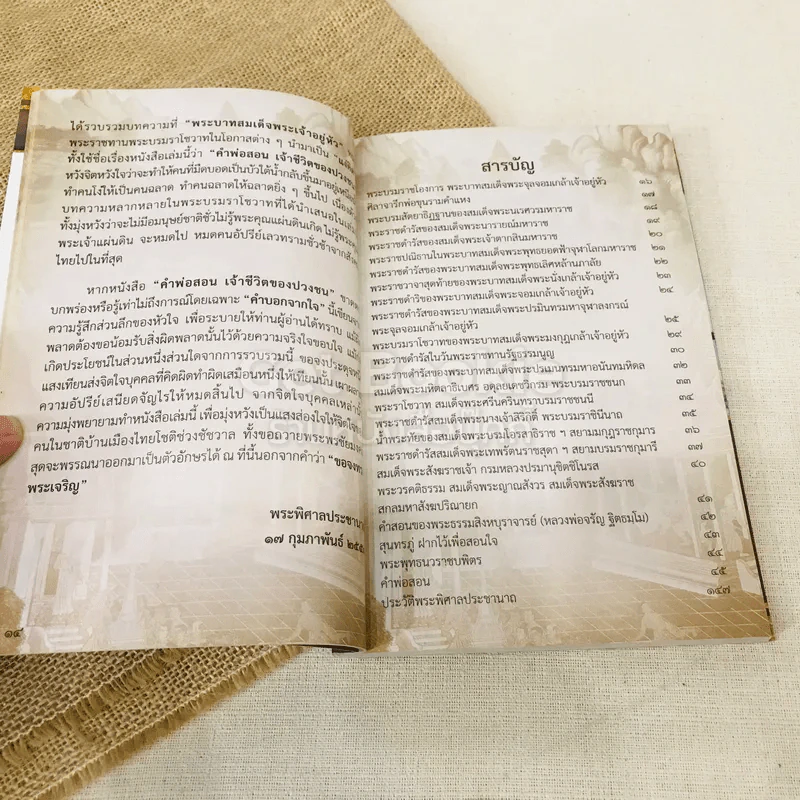 ได้รวบรวมบทความที่ "พระบาทสมเด็จพระเจ้าอยู่หัว"
พระราชทานพระบรมราโชวาทในโอกาสต่าง ๆ นำมาเป็น
ทั้งใช้ชื่อเรื่องหนังสือเล่มนี้ว่า "คำพ่อสอน เจ้าชีวิตของปวงชน
หวังจิตหวังใจว่าจะทำให้คนที่มีดบอดเป็นบัวใต้น้ำกลับขึ้นมาอยู่เหนือ
ทำคนโง่ให้เป็นคนฉลาด ทำคนฉลาดให้ฉลาดยิ่ง ๆ ขึ้นไป
บทความหลากหลายในพระบรมราโชวาทที่ได้นำเสนอใน
ทั้งมุ่งหวังว่าจะไม่มีอมนุษย์ชาติชั่วไม่รู้พระคุณแผ่นดินเกิด ไม่รู้
พระเจ้าแผ่นดิน จะหมดไป หมดคนอัปรีย์เลวทรามชั่วช้าจาก
ไทยไปในที่สุด
หากหนังสือ "คำพ่อสอน เจ้าชีวิตของปวงชน"
บกพร่องหรือรู้เท่าไม่ถึงการณ์โดยเฉพาะ "คำบอกจากใจ" นี้
ความรู้สึกส่วนลึกของหัวใจ เพื่อระบายให้ท่านผู้อ่านได้ทราบ
พลาดต้องขอน้อมรับสิ่งผิดพลาดนั้นไว้ด้วยความจริงใจขอบใจ
เกิดประโยชน์ในส่วนหนึ่งส่วนใดจากการรวบรวมนี้ ขอจงประดุจหนึ่ง
แสงเทียนส่งจิตใจบุคคลที่คิดผิดทำผิดเสมือนหนึ่งให้เทียนนั้น
ความอัปรีย์เสนียดจัญไรให้หมดสิ้นไป จากจิตใจบุคคลเหล่านี้
ความมุ่งพยายามทำหนังสือเล่มนี้ เพื่อมุ่งหวังเป็นแสงส่องใจให้จิตใจ
คนในชาติบ้านเมืองไทยโชติช่วงชัชวาล ทั้งขอถวายพระพรชัยมงคล
สุดจะพรรณนาออกมาเป็นตัวอักษรได้ ณ ที่นี้นอกจากคำว่า "ขอจง
พระเจริญ"
พระพิศาลประชานาถ
๑๗ กุมภาพันธ์
๑๔
สารบัญ
พระบรมราชโองการ พระบาทสมเด็จพระจุลจอมเกล้าเจ้าอยู่หัว ๑๖
ศิลาจารึกพ่อขุนรามคำแหง ๑๗
พระบรมสัตยาธิฏฐานของสมเด็จพระนเรศวรมหาราช ๑๘
พระราชดำรัสของสมเด็จพระนารายณ์มหาราช ๑๙
พระราชดำรัสของสมเด็จพระเจ้าตากสินมหาราช ๒๐
พระราชปณิธานในพระบาทสมเด็จพระพุทธยอดฟ้าจุฬาโลกมหาราช ๒๑
พระราชดำรัสของพระบาทสมเด็จพระพุทธเลิศหล้านภาลัย ๒๒
พระราชวาจาสุดท้ายของพระบาทสมเด็จพระนั่งเกล้าเจ้าอยู่หัว ๒๓
พระราชดำริของพระบาทสมเด็จพระจอมเกล้าเจ้าอยู่หัว ๒๔
พระราชดำรัสของพระบาทสมเด็จพระปรมินทรมหาจุฬาลงกรณ์
พระจุลจอมเกล้าเจ้าอยู่หัว ๒๕
พระบรมราโชวาทของพระบาทสมเด็จพระมงกุฎเกล้าเจ้าอยู่หัว ๒๙
พระราชดำรัสในวันพระราชทานรัฐธรรมนูญ ๓๐
พระราชดำรัสของพระบาทสมเด็จพระปรเมนทรมหาอานันทมหิดล ๓๒
สมเด็จพระมหิตลาธิเบศร อดุลยเดชวิกรม พระบรมราชชนก ๓๓
พระราโชวาท สมเด็จพระศรีนครินทราบรมราชชนนี ๓๔
พระราชดำรัสของสมเด็จพระนางเจ้าสิริกิติ์ พระบรมราชินีนาถ ๓๕
น้ำพระทัยของสมเด็จพระบรมโอรสาธิราช ฯ สยามมกุฎราชกุมาร ๓๖
พระราชดำรัสสมเด็จพระเทพรัตนราชสุดา ฯ สยามบรมราชกุมารี ๓๗
สมเด็จพระสังฆราชเจ้า กรมหลวงปรมานุชิตชิโนรส ๔๐
พระวรคติธรรม สมเด็จพระญาณสังวร สมเด็จพระสังฆราช
สกลมหาสังฆปริณายก ๔๑
คำสอนของพระธรรมสิงหบุราจารย์ (หลวงพ่อจรัญ ฐิตธมฺโม) ๔๒
สุนทรภู่ ฝากไว้เพื่อสอนใจ ๔๓
พระพุทธนวราชบพิตร ๔๔
คำพ่อสอน ๔๕
ประวัติพระพิศาลประชานาถ ๑๔๗